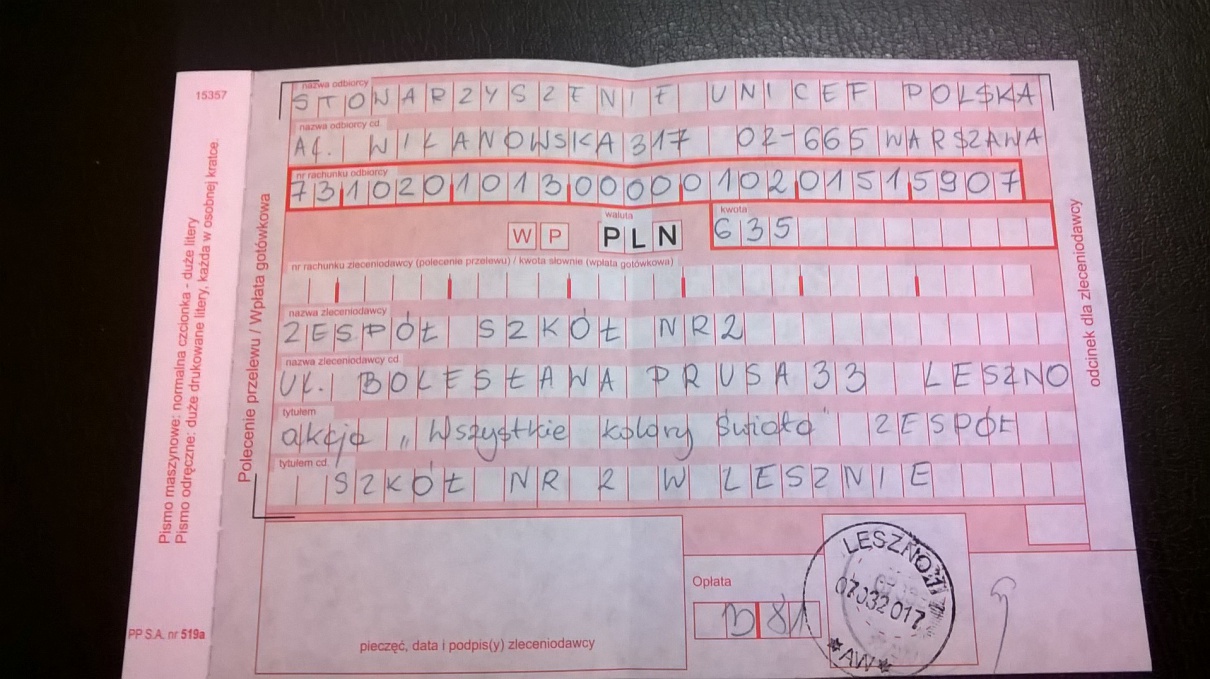 15357
Pismo maszynowe: normalna czcionka - duże litery
Pismo odręczne: duże drukowane litery, każda w osobnej kratce.
PP S.A. nr 519a
Polecenie przelewu / Wpłata gotówkowa
nazwa odbiorcy
STOWARZYSZENIE UNICEF POLSKA
nazwa odbiorcy cd.
AL. WILANOWSKA 317 02-665 WARSZAWA
nr rachunku odbiorcy
73102010130000010201515907
waluta
kwota
W P PLN 635
nr rachunku zleceniodawcy (polecenie przelewu) / kwota słownie (wpłata gotówkowa)
nazwa zleceniodawcy
ZESPÓŁ SZKÓŁ NR2
nazwa zleceniodawcy cd.
UL. BOLESŁAWA PRUSA 33 LESZNO
tytułem
akcja „Wszystkie kolory świata" ZESPÓŁ
tytułem cd.
SZKÓŁ NR 2 W LESZNIE
odcinek dla zleceniodawcy
pieczęć, data i podpis(y) zleceniodawcy
Opłata
LESZNO 1
07032017
*AW*